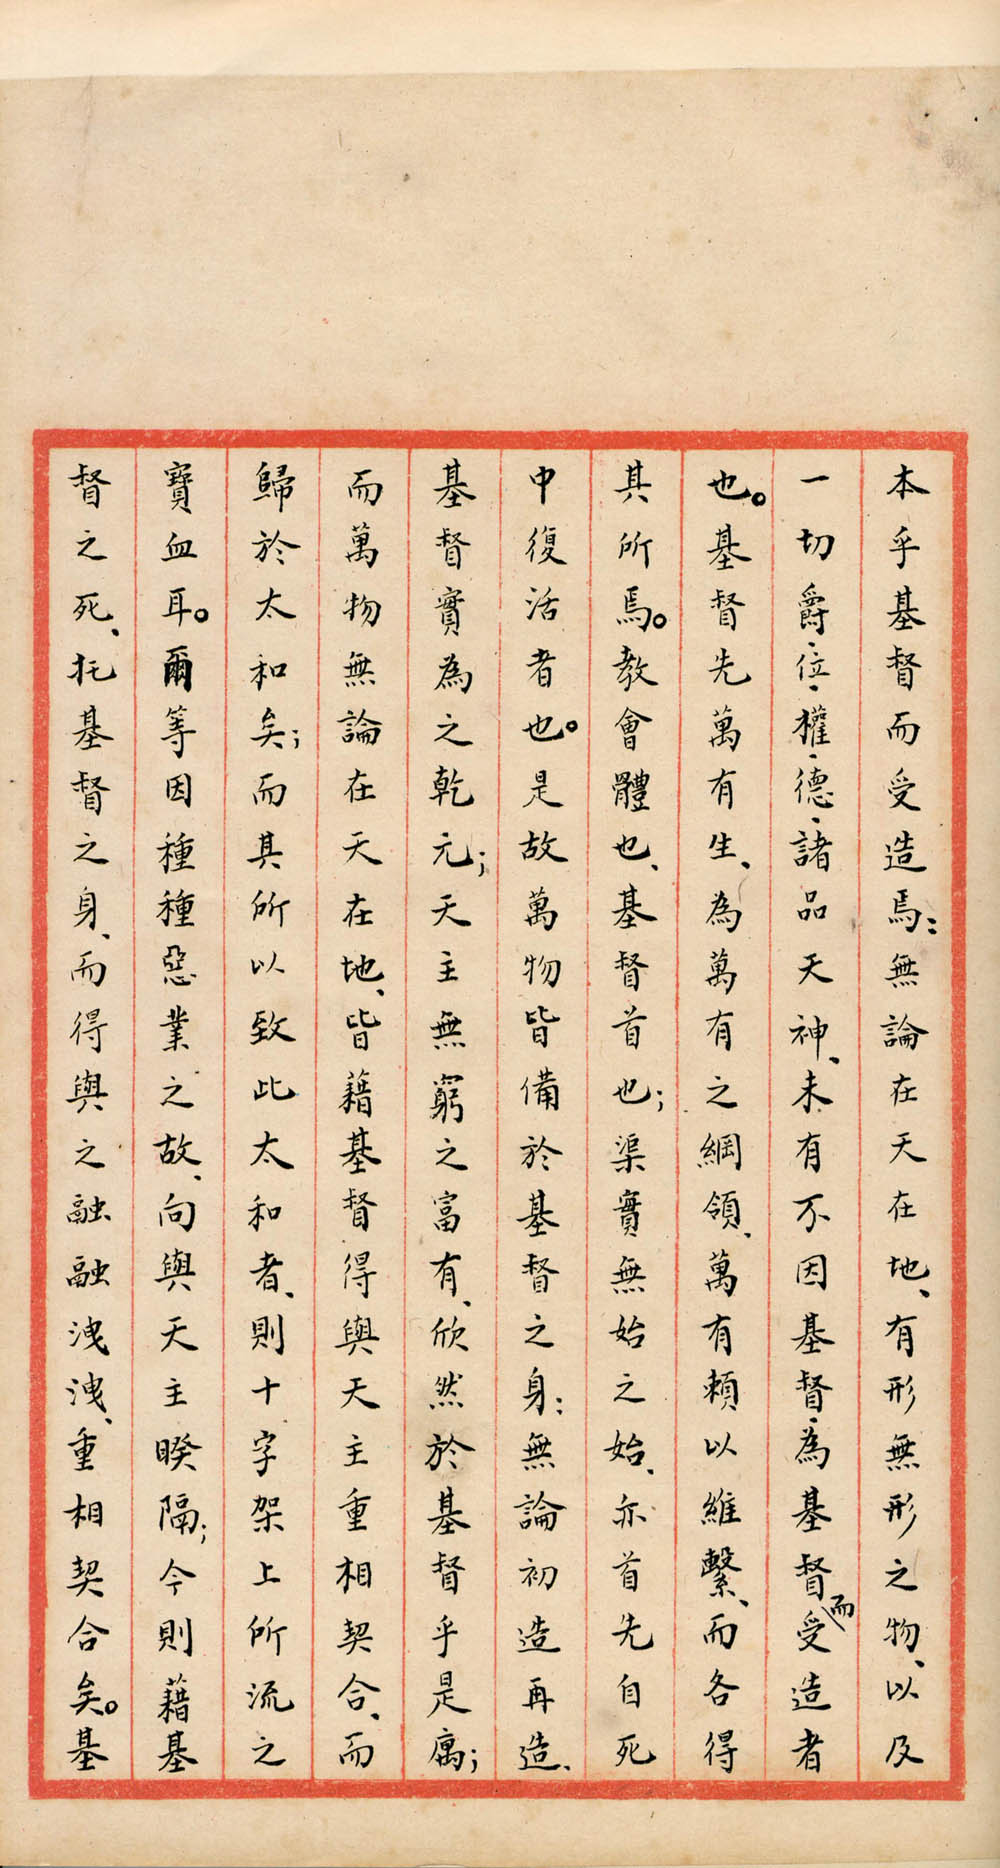 本乎基督而受造焉：無論在天在地、有形無形之物、以及
一切爵、位、權、德、諸品天神、未有不因基督、為基督而受造者
也。基督先萬有生、為萬有之綱領、萬有賴以維繫、而各得
其所焉。教會體也、基督首也；渠實無始之始、亦首先自死
中復活者也。是故萬物皆備於基督之身：無論初造再造、
基督實為之乾元；天主無窮之富有、欣然於基督乎是寓；
而萬物無論在天在地、皆藉基督得與天主重相契合、而
歸於太和矣；而其所以致此太和者、則十字架上所流之
寶血耳。爾等因種種惡業之故、向與天主睽隔；今則藉基
督之死、托基督之身、而得與之融融洩洩、重相契合矣。基